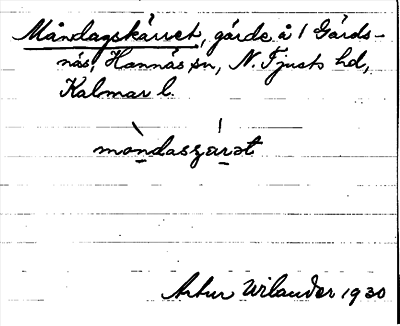 Måndagskärret, gärde å 1 Gärds-
näs, Hannäs sn, N. Tjusts hd,
Kalmar l.
mòndasʒárət
Artur Wilander 1930